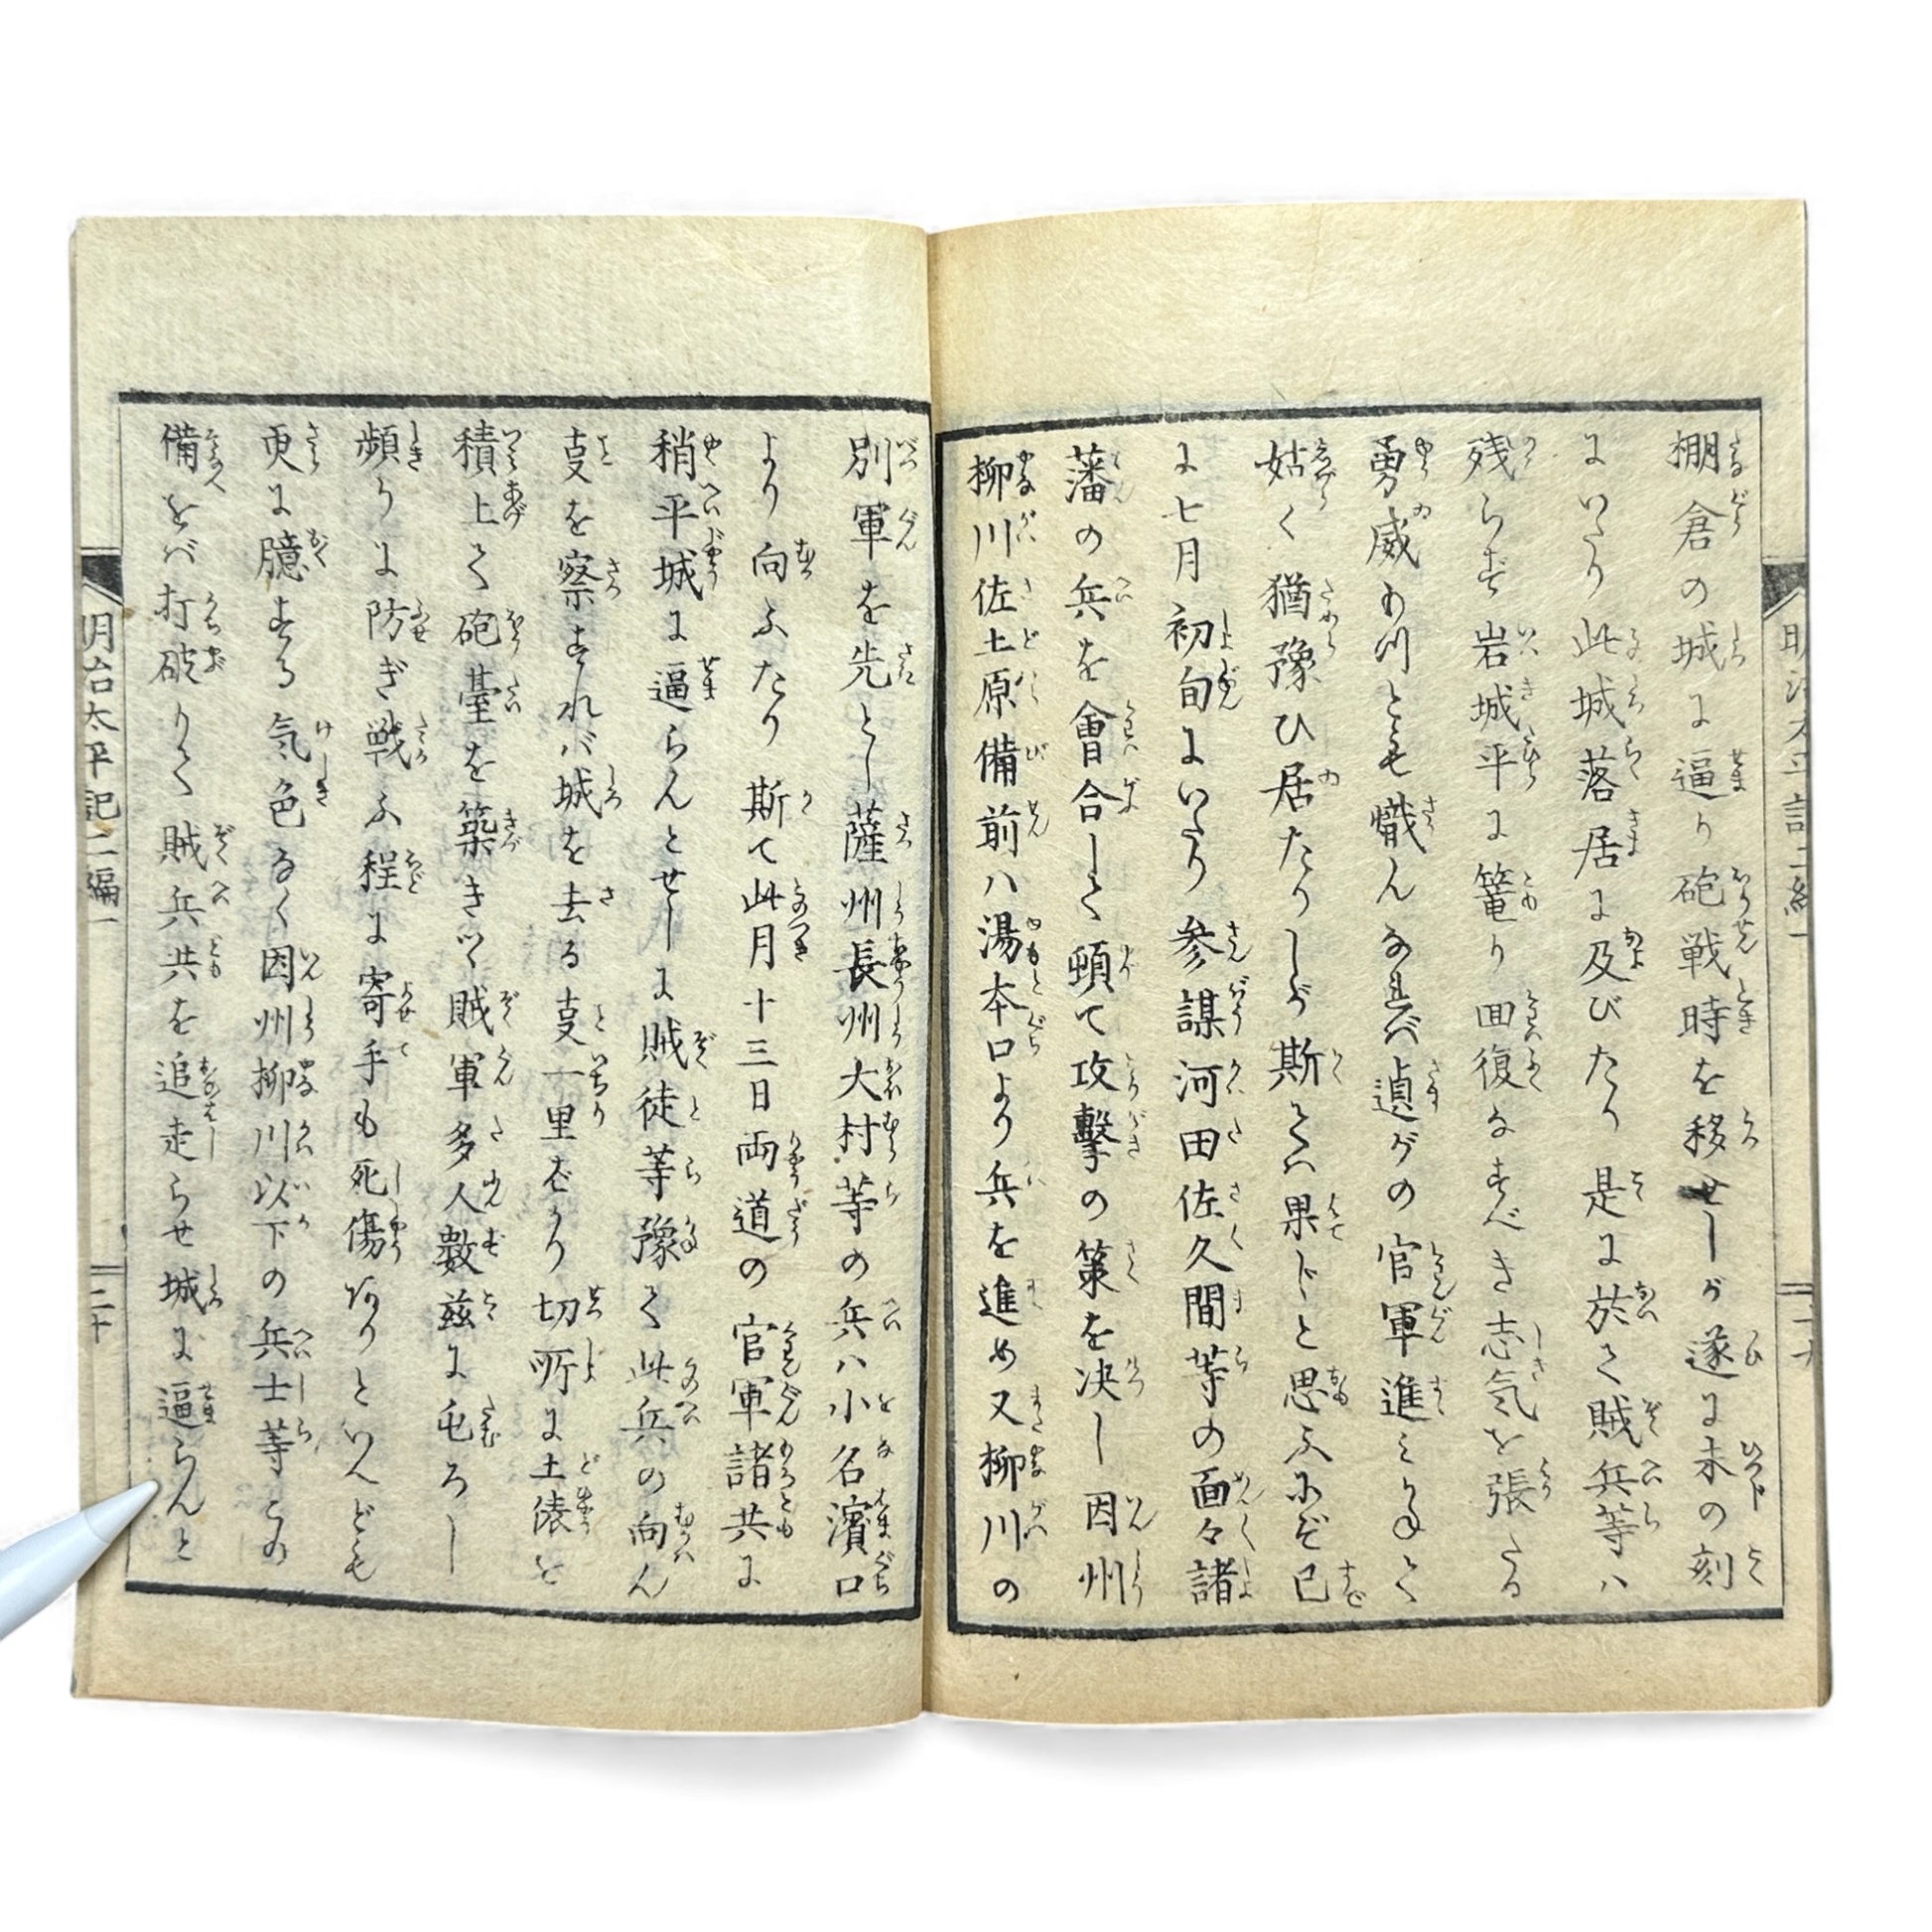 棚倉の城に逼り砲戦時を移せしが遂に未の刻
にいたり此城落居に及びたり是に於て賊兵等ハ
残らず岩城平に篭り回復なすべき志気を張たる
勇威あれども熾んなれバ遉がの官軍進みかねて
姑く猶豫ひ居たりしが斯てハ果じと思ふにぞ已
に七月初旬にいたり参謀河田佐久間等の面々諸
藩の兵を會合して頓て攻撃の策を决し因州
柳川佐土原備前ハ湯本口より兵を進め又柳川の
別軍を先とし薩州長州大村等の兵ハ小名濱口
より向ふたり斯て此月十三日両道の官軍諸共に
稍平城に逼らんとせしに賊徒等豫て此兵の向ん
支を察すれバ城を去る支一里だり切所に土俵を
積上て砲臺を築きツヽ賊軍多人數茲に屯ろし
頻りに防ぎ戦ふ程に寄手も死傷ありといへども
更に臆する気色なく因州柳川以下の兵士等この
備をバ打破りて賊兵共を追走らせ城に逼らんと
明治太平記二編一
二十
明治太平記二編一